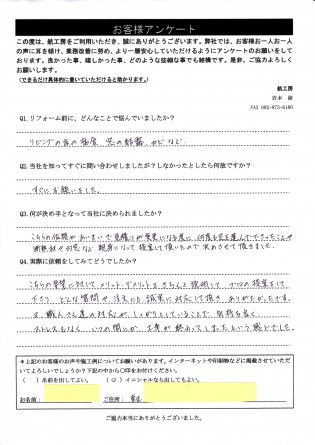 お客様アンケート
この度は、航工房をご利用いただき、誠にありがとうございます。弊社では、お客様お一人お一人
の声に耳を傾け、業務改善に努め、より一層安心していただけるようにアンケートのお願いをして
おります。良かった事、嬉しかった事、どのような些細な事でも結構です。是非、ご協力よろしく
お願いします。
（できるだけ具体的に書いていただけると助かります。）
航工房
岩本 
FAX 092-673-6180
Q1.リフォーム前に、どんなことで悩んでいましたか？
リビングの床の 窓の結露、サビなど
Q2.当社を知ってすぐに問い合わせしましたが？しなかったとしたら何故ですか？
すぐにお願いをした。
Q3.何が決め手となって当社に決められましたか？
こちらの依頼があいまいで見積りが変更になる度に、何度も足を運んで下さったことや
断熱材や内容など親身になって提案して頂いたので決めさせて頂きました。
Q4.実際に依頼をしてみてどうでしたか？
こちらの要望に対してメリット・デメリットをきちんと説明して、1つ1つの提案をして
下さり、どんな質問や注文にも誠実に対応して頂き、ありがたかったです。
又、職人さん達の対応がしっかりとしていることで、気持ち良く、
ストレスもなく、いつの間にか、工事が終わってしまったという感じでした。
＊上記のお客様のお声や施工例についてお願いがあります。インターネットや印刷物などに掲載させていただ
いてよろしいでしょうか？下記の中から〇印をお付けください。
（　）名前を出してよい。（〇）イニシャルなら出してもよい。
お名前： ご住所：
ご協力本当にありがとうございました。